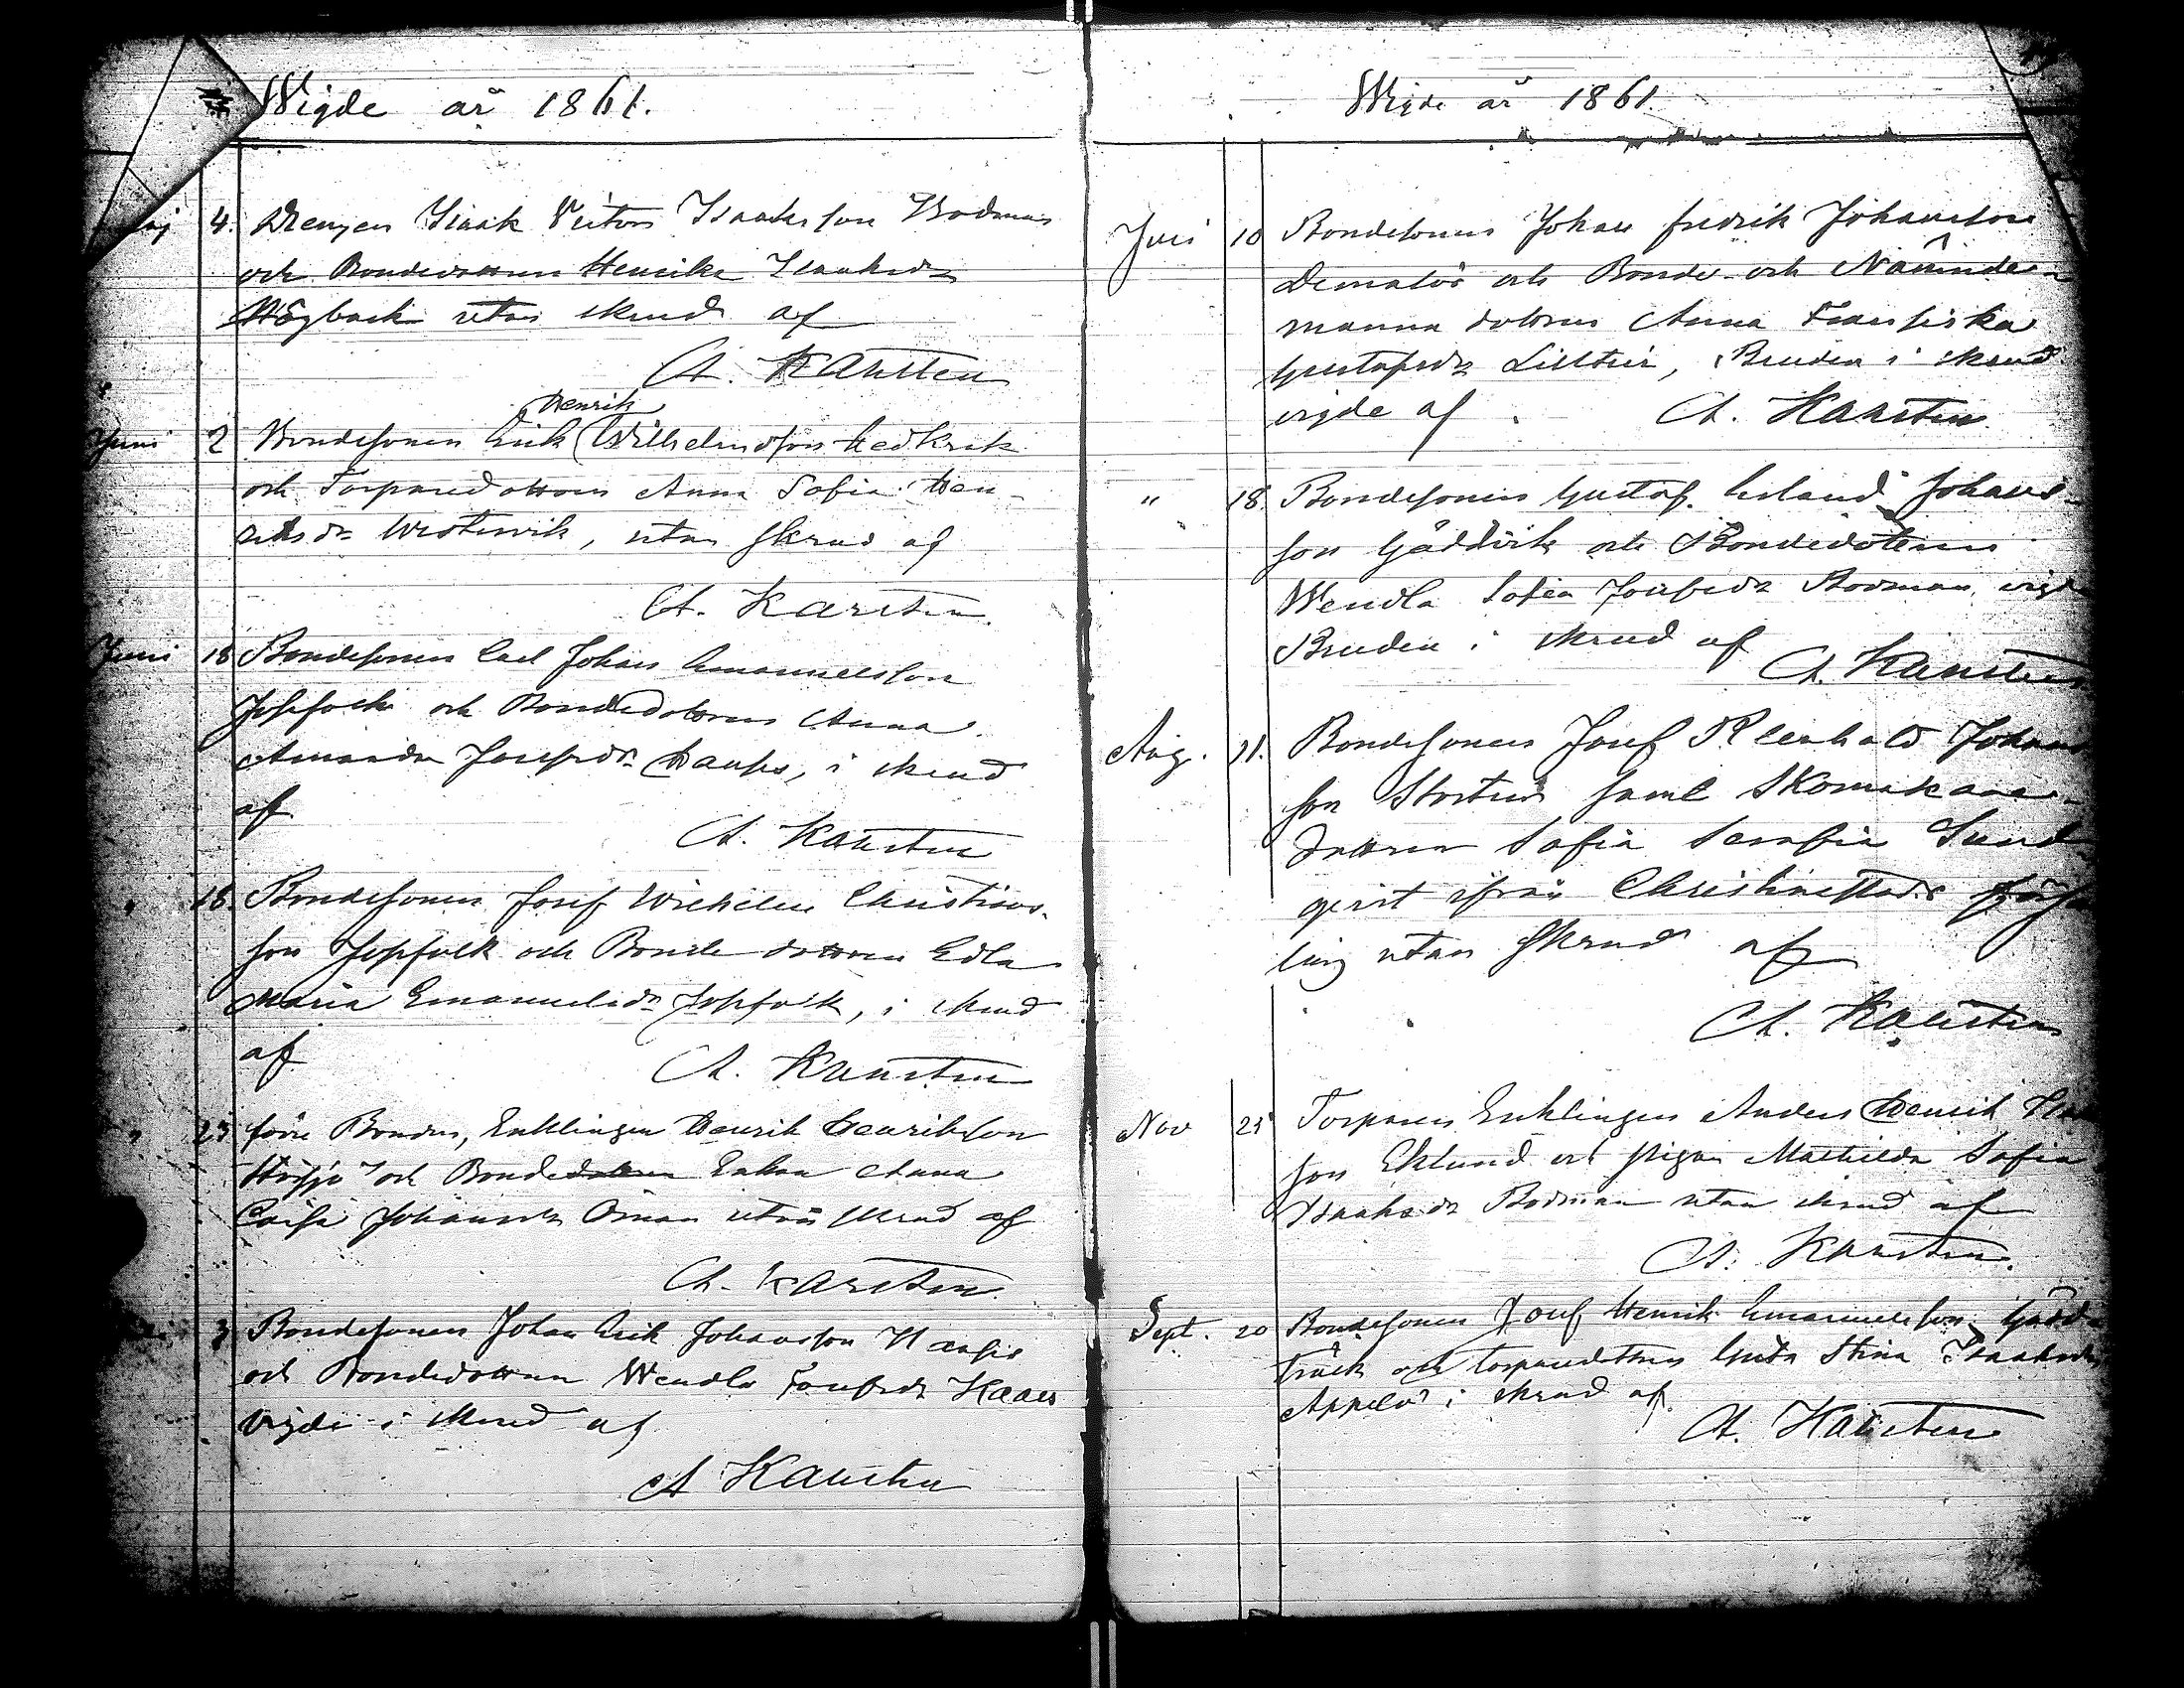 Wigde år 1861.
Maj 4. Drengen Isaak Victor Isaaksson Bodman
och Bondedottren Henrika Isaaksdr
Högback utan skrud af
A. Karsten
Henrik
Juni 2 Bondesonen Erik Wilhelmsson
och Torparedottren Anna Sofia Hen-
riksdr Westervik, utan skrud af
A. Karsten.
Juni 18 Bondesonen Carl Johan Emanuelsson
Jossfolk och Bondedottren Anna
Amanda Josefsdr i skrud
af
A. Karsten
" 18. Bondesonen Josef Wilhelm Christians-
son Jossfolk och Bonde dottren Edla
Maria Emanuelsdr Jossfolk, i skrud
af
A. Karsten
" 23 förre Bonden, Enklingen Henrik Henriksson
och Bondedottren Enkan Anna
Caisa Johansdr Öman utan skrud af
A. Karsten.
3 Bondesonen Johan Erik Johansson
och Bondedottren Wendla Josefsdr
vigde i skrud af
A Karsten
Wigde år 1861.
Juli 10 Bondesonen Johan Fredrik Johansson
och Bonde- och Nämnde-
manna dottren Anna Fransiska
Gustafsdr Lilltui, Bruden i skrud
vigde af A. Karsten
" 18. Bondesonen Gustaf Erland Johans-
son Gäddvik och Bondedottren
Wendla Sofia Josefsdr Bodman, vigde
Bruden i skrud af
A. Karsten
Aug. 11. Bondesonen Josef Johans
son samt Skomakare-
dottren Sofia Serafia Sund
qvist ifrån Christinestads försam
ling utan skrud af
A. Karsten
Nov 25 Torparen Enklingen Anders Henrik
son Eklund och pigan Mathilda Sofia
Isaaksdr Bodman utan skrud af
A. Karsten.
Sept. 20 Bondesonen Josef Henrik Emanuelsson Gädd-
träsk och torparedottren Greta Stina Isaaksdr
Appelö i skrud af
A. Karsten